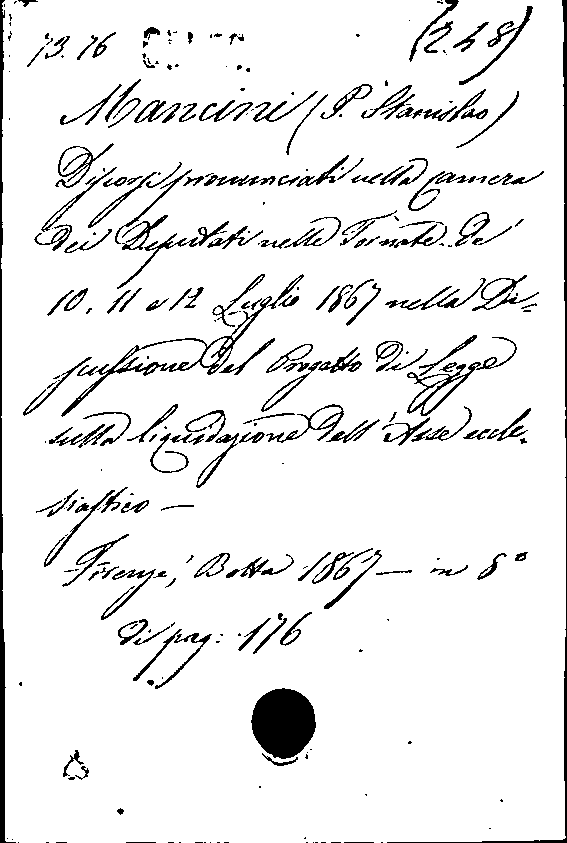 73.76 (2.48)
Mancini (P. Stanislao)
Discorsi pronunciati nella Camera
dei Deputati nelle Tornate de'
10, 11 e 12 Luglio 1867 nella Di=
scussione del Progetto di Legge
sulla liquidazione dell'Asse eccle-
siastico —
Firenze, Botta 1867 — in 8°
di pag: 176